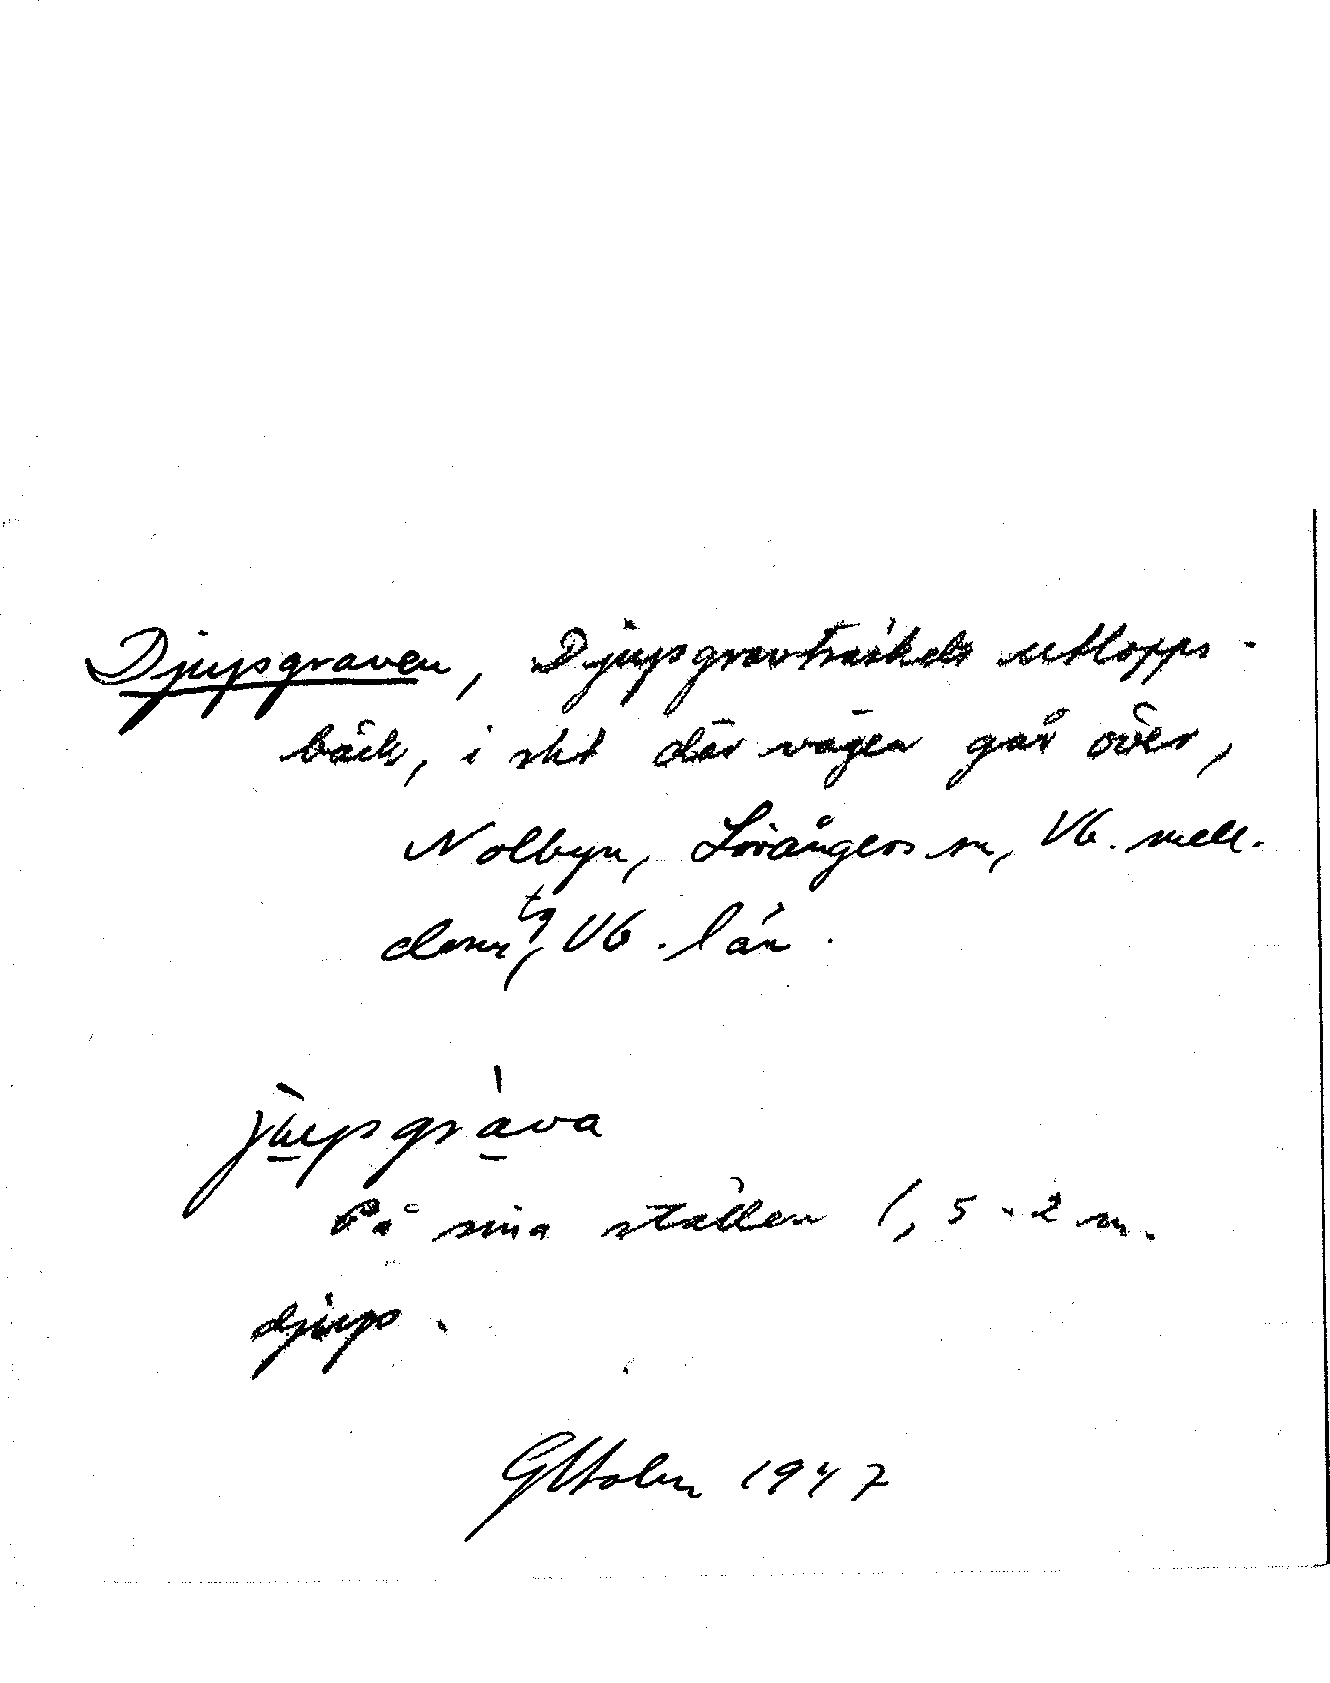 Djupsgraven, Djupsgravträskets utlopps-
bäck, i sht där vägen går över,
Nolbyn, Lövångers sn, Vb. mell.
doms tg, Vb. län.
jʉpsgrava
På sina ställen 1,5-2 m.
djups.
GHolm 1947